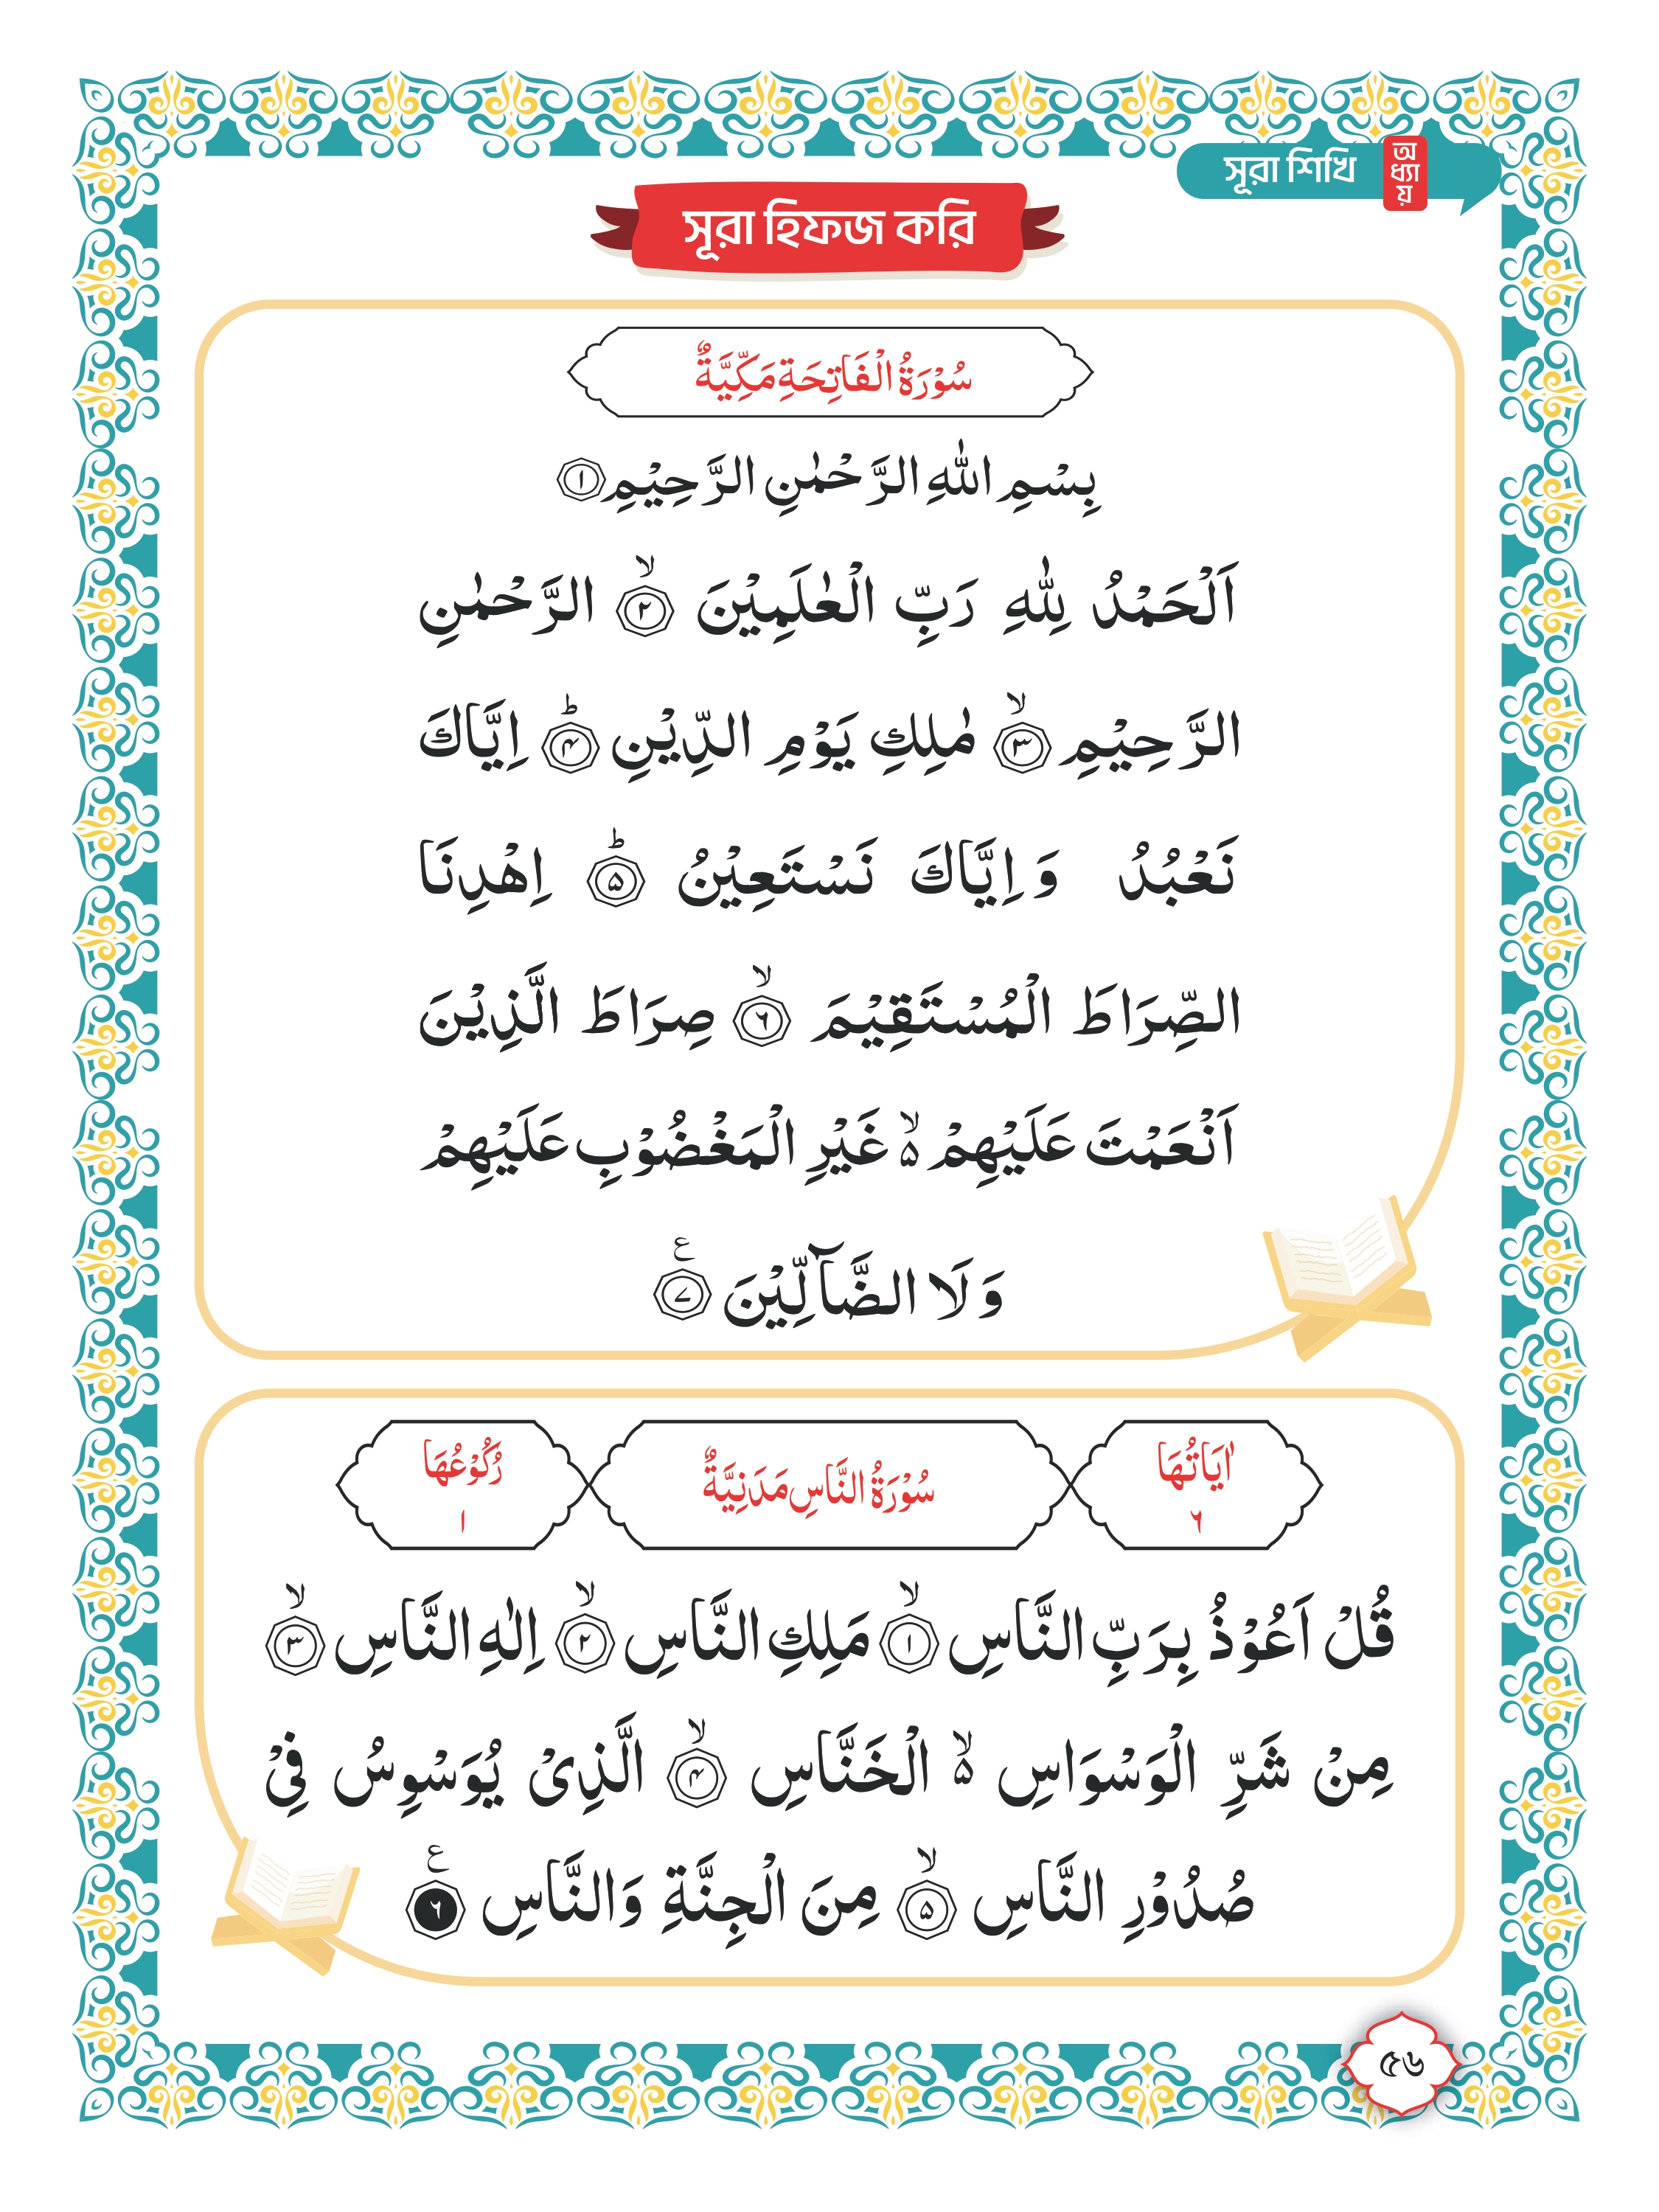 সূরা শিখি অধ্যায়
সূরা হিফজ করি
سُوْرَةُ الْفَاتِحَةِ مَكِّيَّةٌ
بِسْمِ اللّٰهِ الرَّحْمٰنِ الرَّحِيْمِ ۝١
اَلْحَمْدُ لِلّٰهِ رَبِّ الْعٰلَمِيْنَ ۙ۝٢ الرَّحْمٰنِ
الرَّحِيْمِ ۙ۝٣ مٰلِكِ يَوْمِ الدِّيْنِ ؕ۝۴ اِيَّاكَ
نَعْبُدُ وَ اِيَّاكَ نَسْتَعِيْنُ ؕ۝۵ اِهْدِنَا
الصِّرَاطَ الْمُسْتَقِيْمَ ۙ۝۶ صِرَاطَ الَّذِيْنَ
اَنْعَمْتَ عَلَيْهِمْ ۙ۵ غَيْرِ الْمَغْضُوْبِ عَلَيْهِمْ
وَ لَا الضَّآلِّيْنَ ۝۷ ع
اٰيَاتُهَا ۶
سُوْرَةُ النَّاسِ مَدَنِيَّةٌ
رُكُوْعُهَا ١
قُلْ اَعُوْذُ بِرَبِّ النَّاسِ ۙ۝١ مَلِكِ النَّاسِ ۙ۝٢ اِلٰهِ النَّاسِ ۙ۝٣
مِنْ شَرِّ الْوَسْوَاسِ ۙ۵ الْخَنَّاسِ ۙ۝۴ الَّذِىْ يُوَسْوِسُ فِىْ
صُدُوْرِ النَّاسِ ۙ۝۵ مِنَ الْجِنَّةِ وَالنَّاسِ ۝۶ ع
৫৬